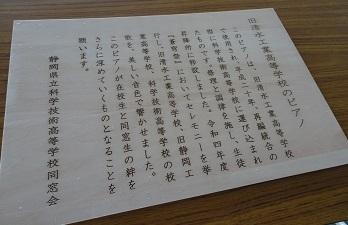 旧清水工業高等学校のピアノ
このピアノは、旧清水工業高等学校
で使用され、平成二十年、再編統合の
際に科学技術高等学校へ運び込まれ
たものです。修理と調律を施し、生徒
昇降所に移設しました。令和四年度
『蒼穹祭』においてセレモニーを挙
行し、旧清水工業高等学校、旧静岡工
業高等学校、科学技術高等学校の校
歌を、美しい音色で響かせました。
このピアノが在校生と同窓生の絆を
さらに深めていくものとなることを
願います。
静岡県立科学技術高等学校同窓会